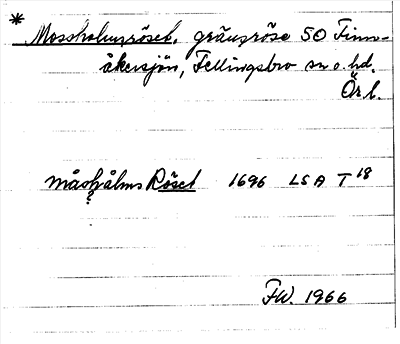 *
Mossholmsröset, gränsröse SO Finn-
åkersjön, Fellingsbro sn o. hd.
Ör l.
måshålms Röset 1696 LSA T 18
?
FW. 1966